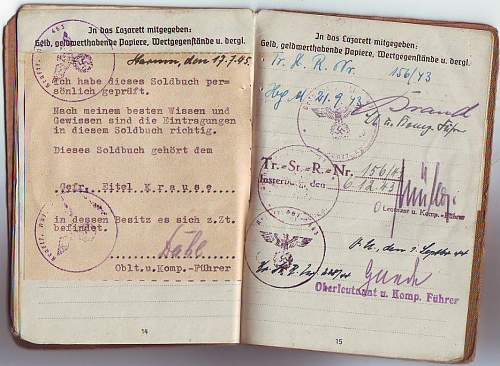 In das Lazarett mitgegeben:
Geld, geldwerthabende Papiere, Wertgegenstände u. dergl.
den 17.7.45.
Ich habe dieses Soldbuch per=
sönlich geprüft.
Nach meinem besten Wissen und
Gewissen sind die Eintragungen
in diesem Soldbuch richtig.
Dieses Soldbuch gehört dem
Gefr. Eitel Krause
in dessen Besitz es sich z.Zt.
befindet.
Oblt.u.Komp.-Führer
14
In das Lazarett mitgegeben:
Geld, geldwerthabende Papiere, Wertgegenstände u. dergl.
Tr. K. R. Nr. 156/43
21.9.43
Brand
Lt. u. Komp. Führer
Tr.=St.=R.=Nr. 156/43
Insterburg, den 6.12.43
Leutnant u. Komp.-Führer
den 2. Sept. 44
Oberleutnant u. Komp. Führer
15